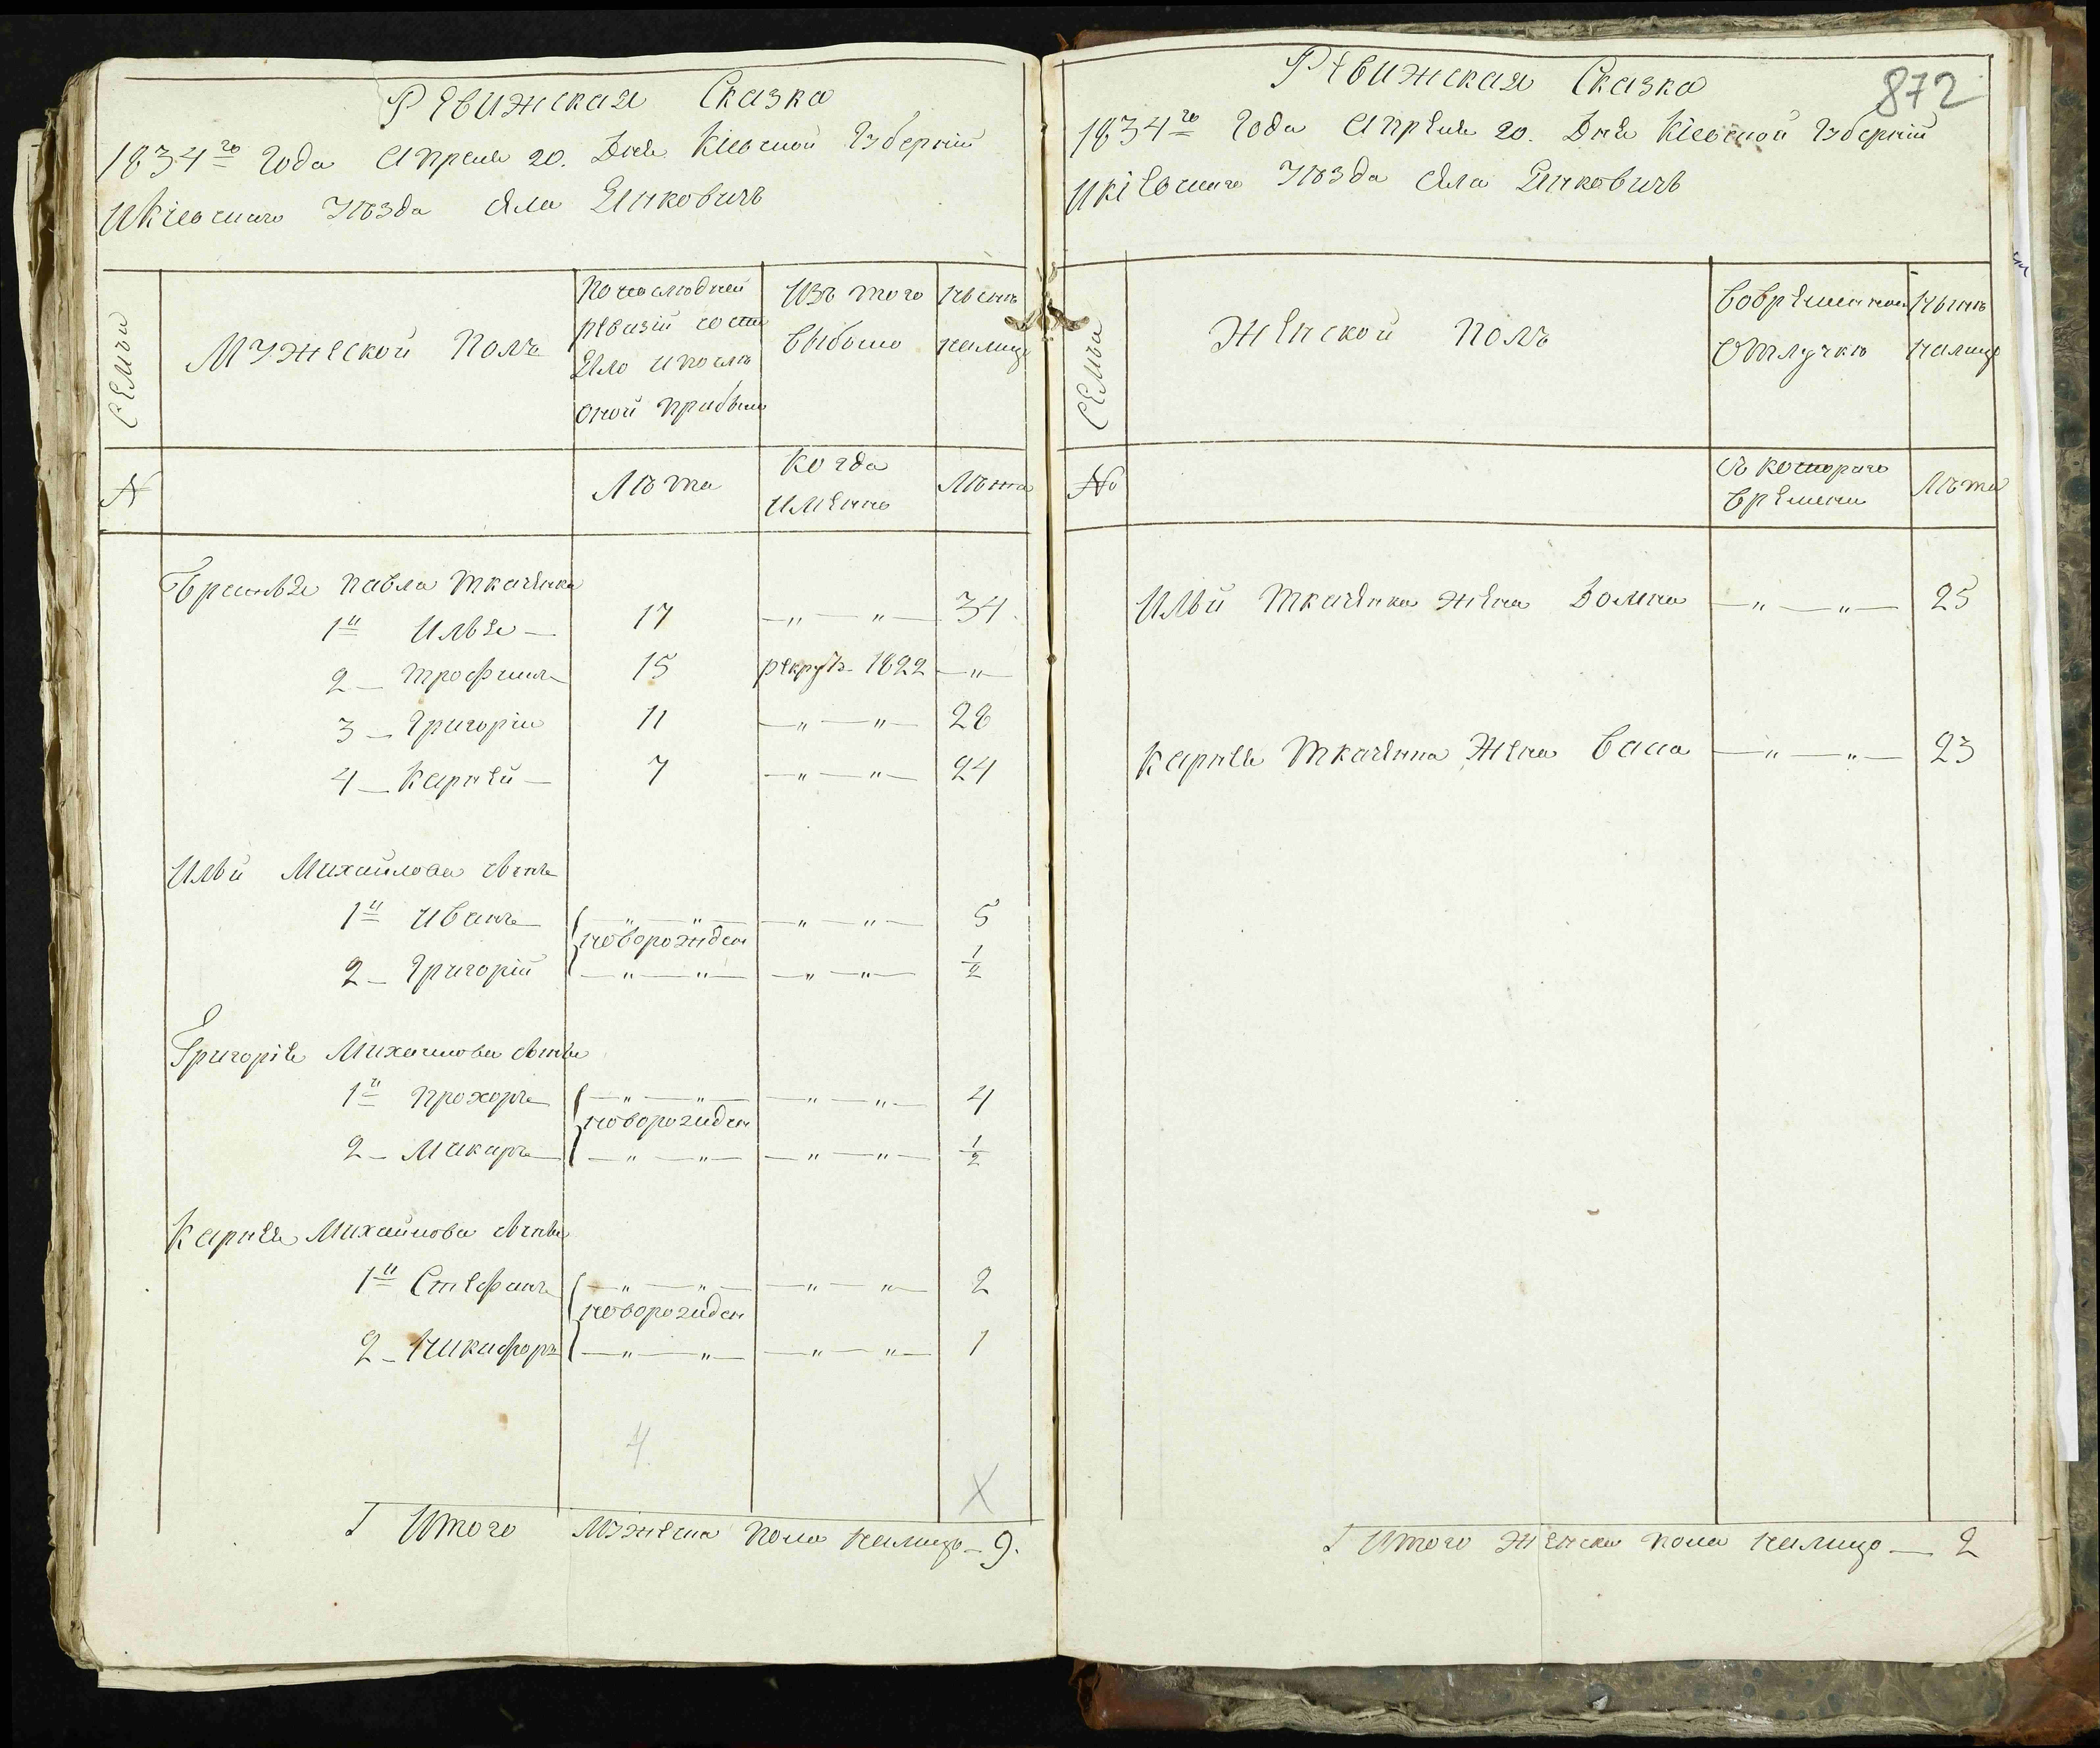 Ревижская Сказка
1834го Года Апреля 20. Дня Кіевской Губерніи
Икіевскаго Уѣзда Села Янковичъ
СЕМЬИ
Мужеской Полъ
По последней
ревизіи состо
яло и послѣ
оной прибыло
Изъ того
выбыло
Нынѣ
налицо
№
Лѣта
Когда
имянно
Лѣта
Братья Павла Ткаченка
1й Илья — 17 — „ — „ — 34
2 — Трофимъ 15 рекрутъ 1822 — „ —
3 — Григорій 11 — „ — „ — 28
4 — Карней — 7 — „ — „ — 24
Ильи Михайлова дѣти
1й Иванъ — „ — „ — — „ — „ — 5
новорожден
2 — Григорій — „ — „ — — „ — „ — ½
Григорія Михайлова дѣти
1й Прохоръ — „ — „ — — „ — „ — 4
новорожден
2 — Макаръ — „ — „ — — „ — „ — ½
Карнея Михайлова дѣти
1й Стефанъ — „ — „ — — „ — „ — 2
новорожден
2 — Никифоръ — „ — „ — — „ — „ — 1
4
X
Итого Мужеска пола налицо — 9.
872
Ревижская Сказка
1834го Года Апреля 20. Дня Кіевской Губерніи
Икіевскаго Уѣзда Села Янковичъ
СЕМЬИ
Женской Полъ
Вовременной
отлучкѣ
Нынѣ
налицо
№
Съ котораго
времени
Лѣта
Ильи Ткаченка жена Домна — „ — „ — 25
Карнея Ткаченка жена Васа — „ — „ — 23
Итого Женска пола налицо — 2